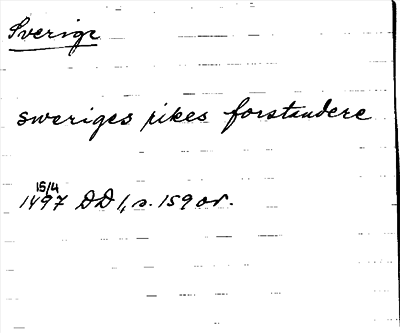 Sverige
sweriges rikes forstandere
15/4
1497 DD 1, s. 159 or.